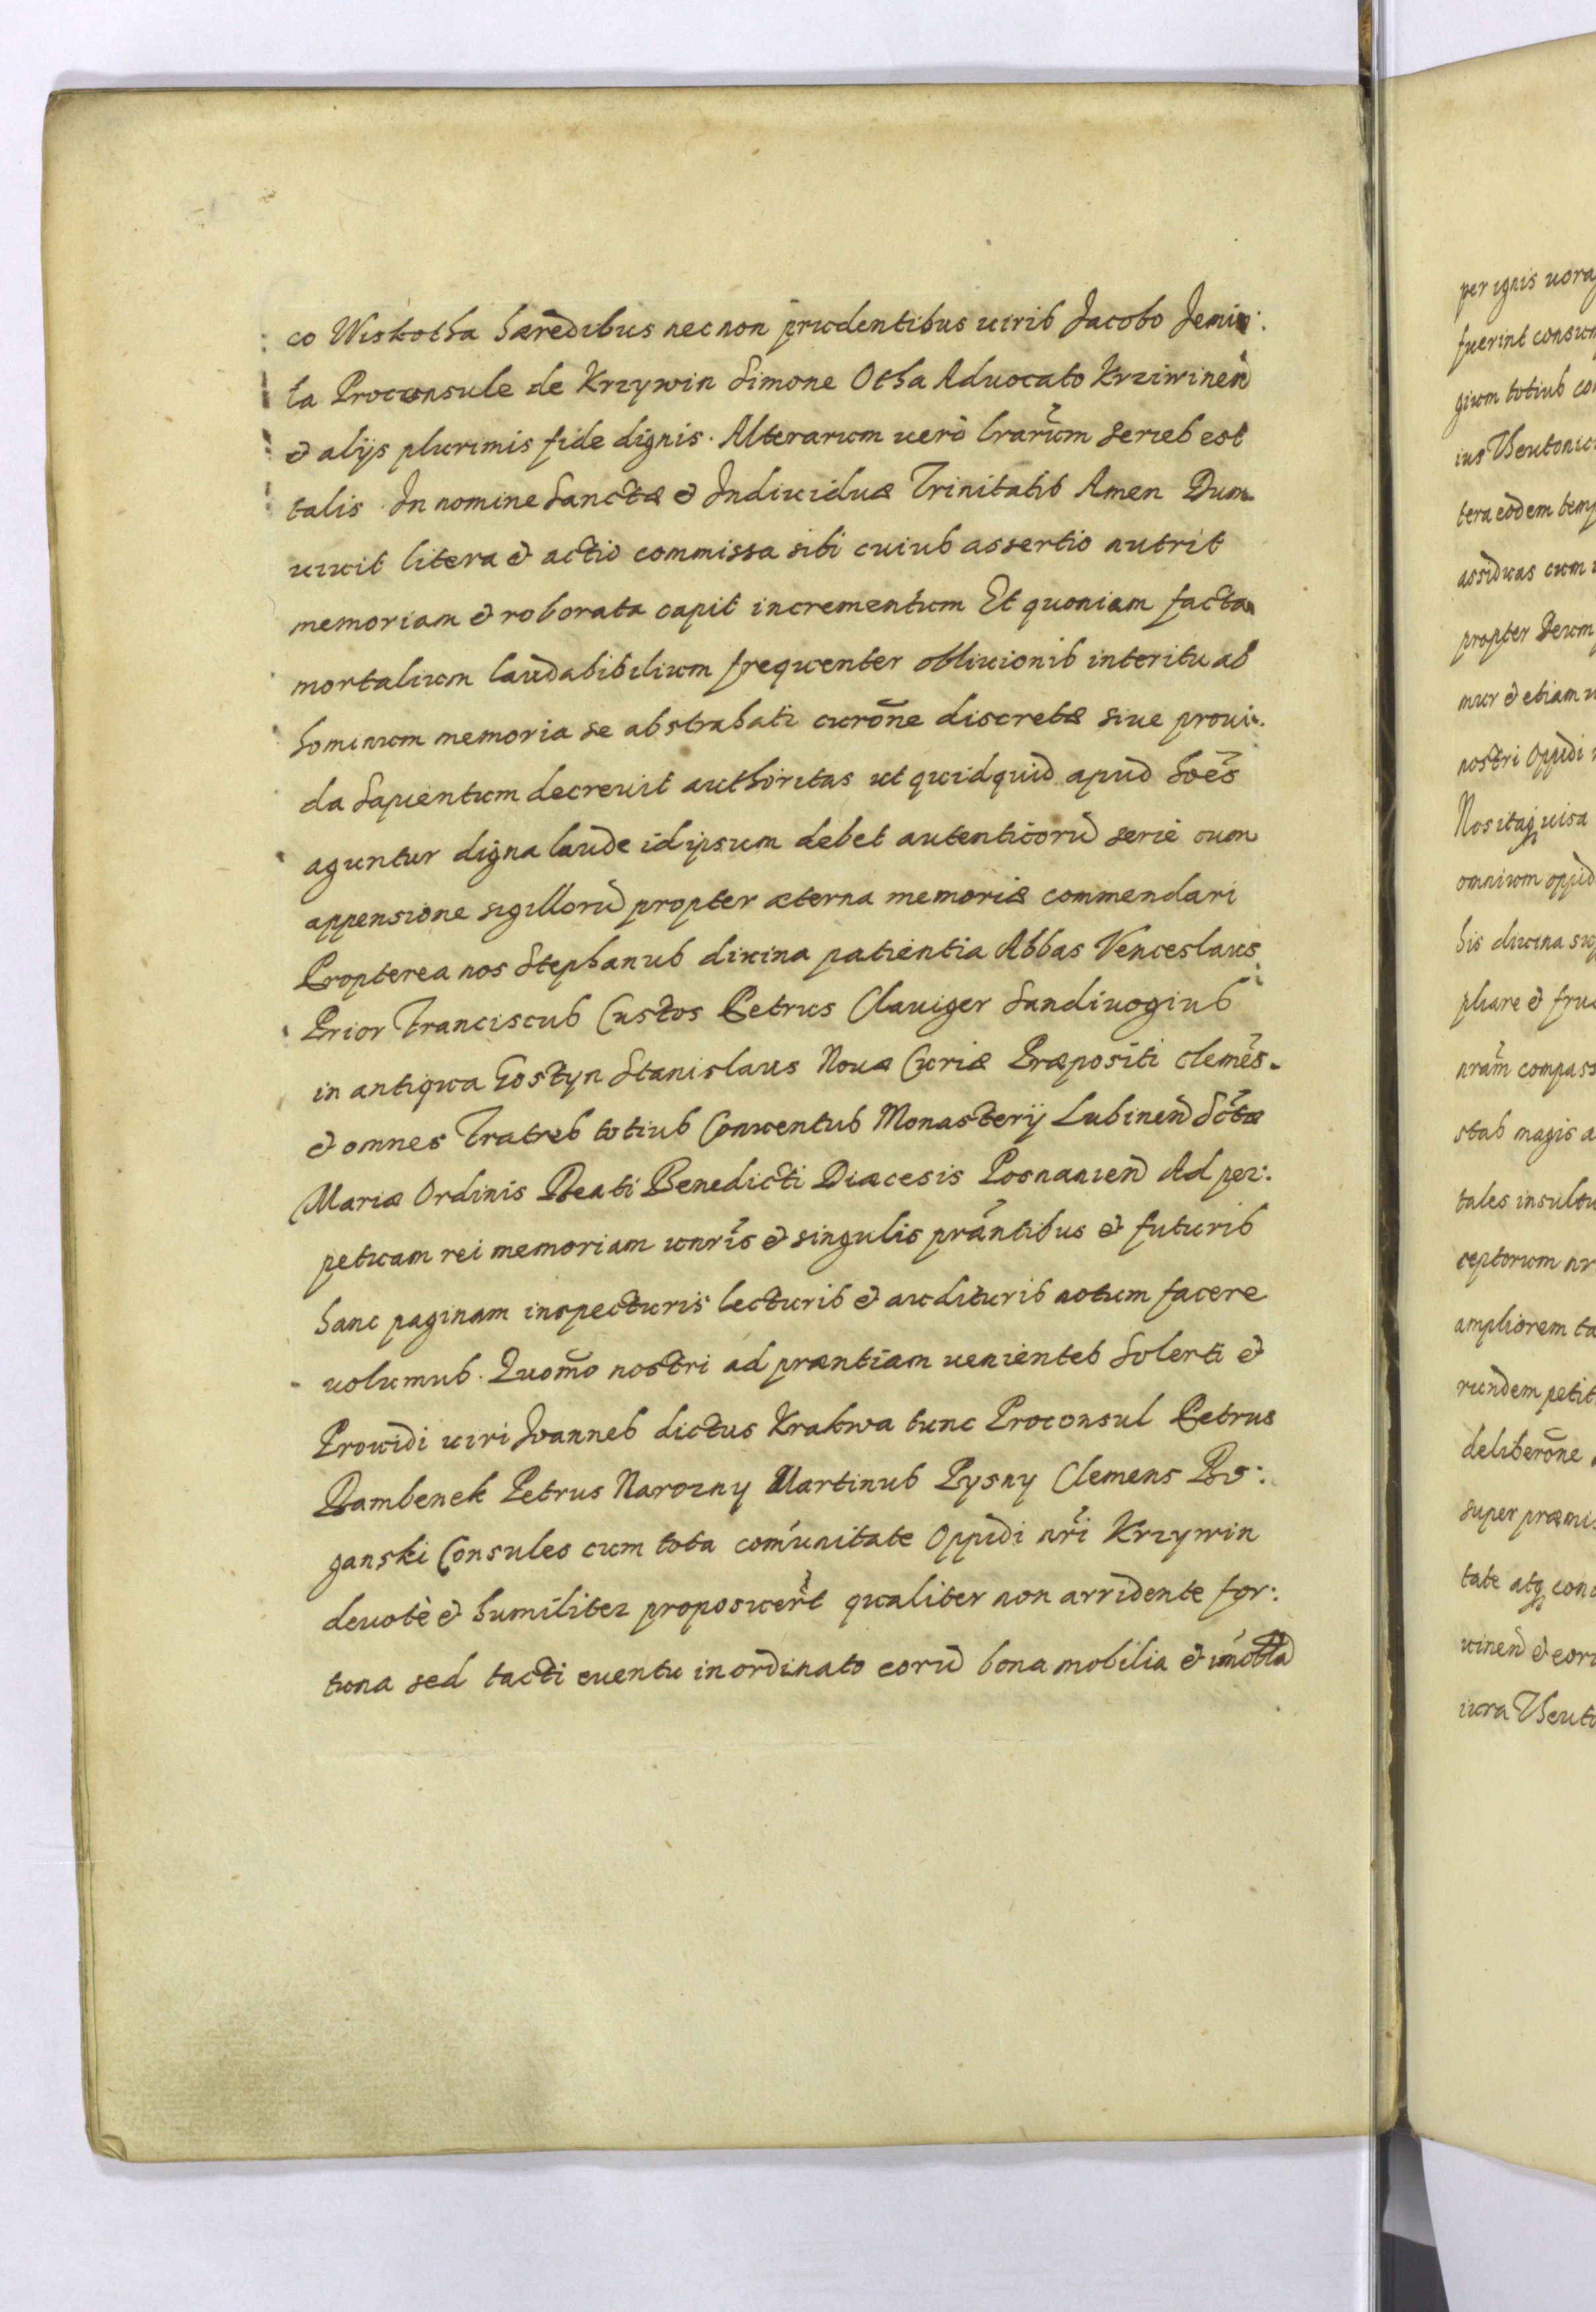 co Wiskotha hæredibus nec non prudentibus uiris Jacobo Jemio:
ta Proconsule de Krzywin Simone Otha Aduocato Krziwineñ
& alijs plurimis fide dignis. Alterarum uerò lrarum series est
talis In nomine Sanctæ & Indiuiduæ Trinitatis Amen Dum
uiuit litera & actio commissa sibi cuius assertio nutrit
memoriam & roborata capit incrementum Et quoniam facta
mortalium laudabibilium frequenter obliuionis interitu ab
hominum memoria se abstrahati curõne discretæ siue proui:
da Sapientum decreuit authoritas ut quidquid apud hoẽs
aguntur digna laude id ipsum debet autenticorũ serie cum
appensione sigillorũ propter æterna memoriæ commendari
Propterea nos Stephanus diuina patientia Abbas Venceslaus
Prior Franciscus Custos Petrus Clauiger Sandiuogius
in antiqua Gostyn Stanislaus Noua Curiæ Præpositi clemẽs
& omnes Fratres totius Conuentus Monasterij Lubineñ Sctæ
Mariæ Ordinis Beati Benedicti Diæcesis Posnanieñ Ad per:
petuam rei memoriam unris & singulis prãntibus & futuris
hanc paginam inspecturis lecturis & audituris notum facere
uolumus. Quomõ nostri ad præntiam uenientes Solerti &
Prouidi uiri Joannes dictus Krakwa tunc Proconsul Petrus
Dambenek Petrus Narozny Martinus Pysny Clemens Bo:
ganski Consules cum tota comunitate Oppidi nri Krzywin
deuotè & humiliter proposuert qualiter non arridente for:
tuna sed tacti euentu inordinato eorũ bona mobilia & imobilia
per ignis uora
fuerint consum
gium totius co
ius Theutonic
tera eodem temp
assiduas cum
propter Deum
mur & etiam
nostri Oppidi
Nos itaq uisa
omnium oppid
his diuina su
phare & fru
nram compass
stas magis a
tales insultu
ceptorum nr
ampliorem ta
rundem petit
deliberõne
super præmis
tate atq con
uineñ & eor
iura Theuto